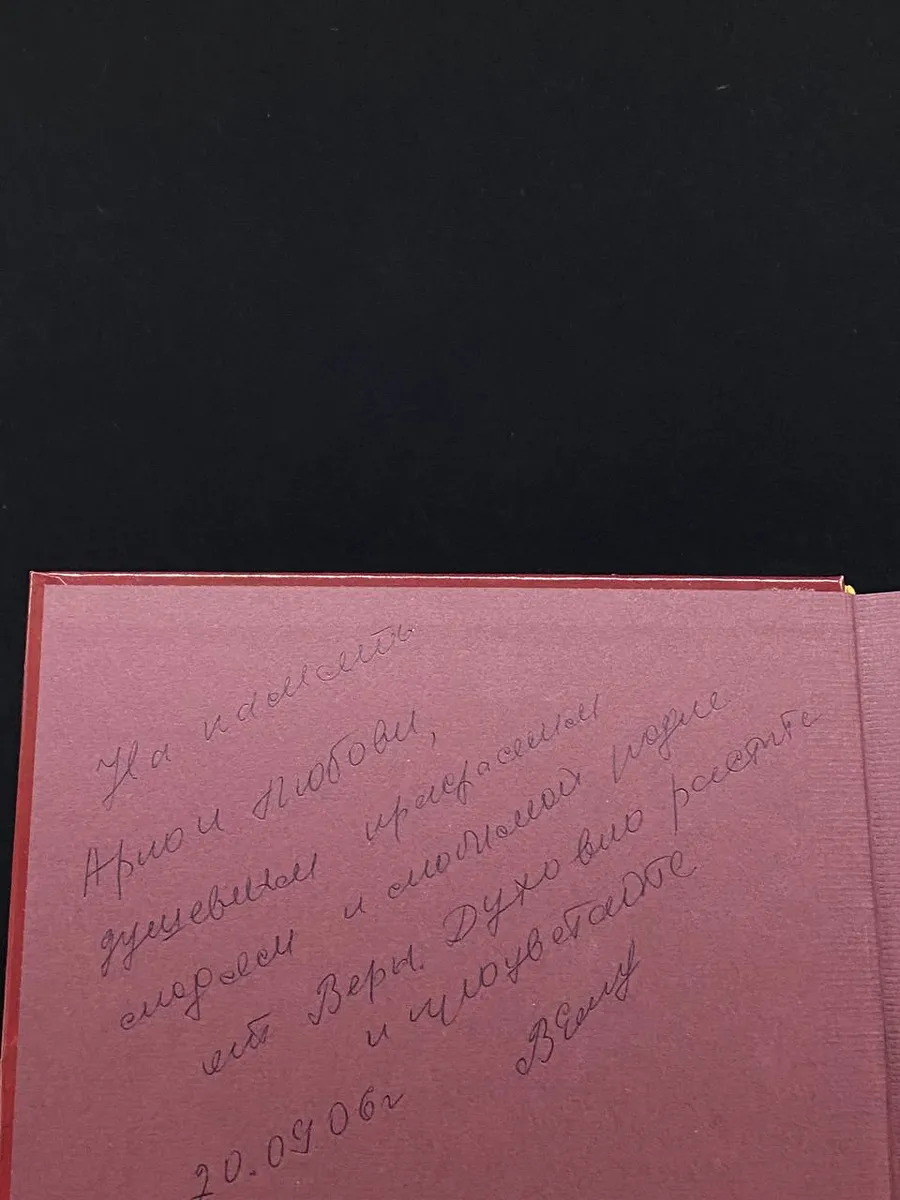 На память
Арно и Любови,
душевным прекрасным
людям и любимой родне
от Веры. Духовно растите
и процветайте
20.09.06г